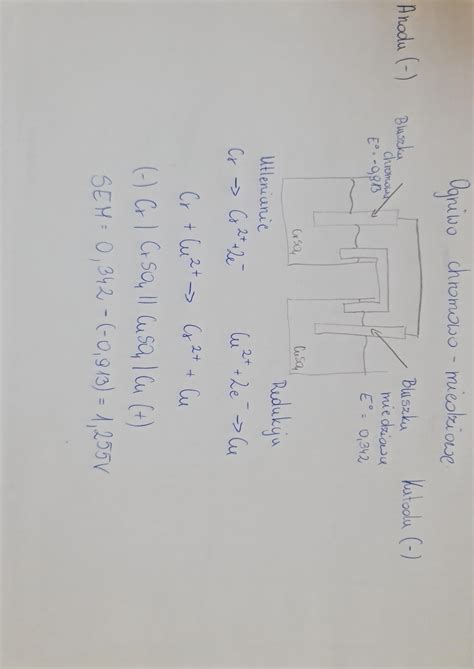 Ogniwo chromowo - miedziowe
Anoda (-)
Katoda (-)
Blaszka
chromowa
E° = -0,913
Blaszka
miedziowa
E° = 0,342
CrSO4
CuSO4
Utlenianie
Redukcja
Cr → Cr²⁺ + 2e⁻
Cu²⁺ + 2e⁻ → Cu
Cr + Cu²⁺ → Cr²⁺ + Cu
(-) Cr | CrSO4 || CuSO4 | Cu (+)
SEM = 0,342 - (-0,913) = 1,255V